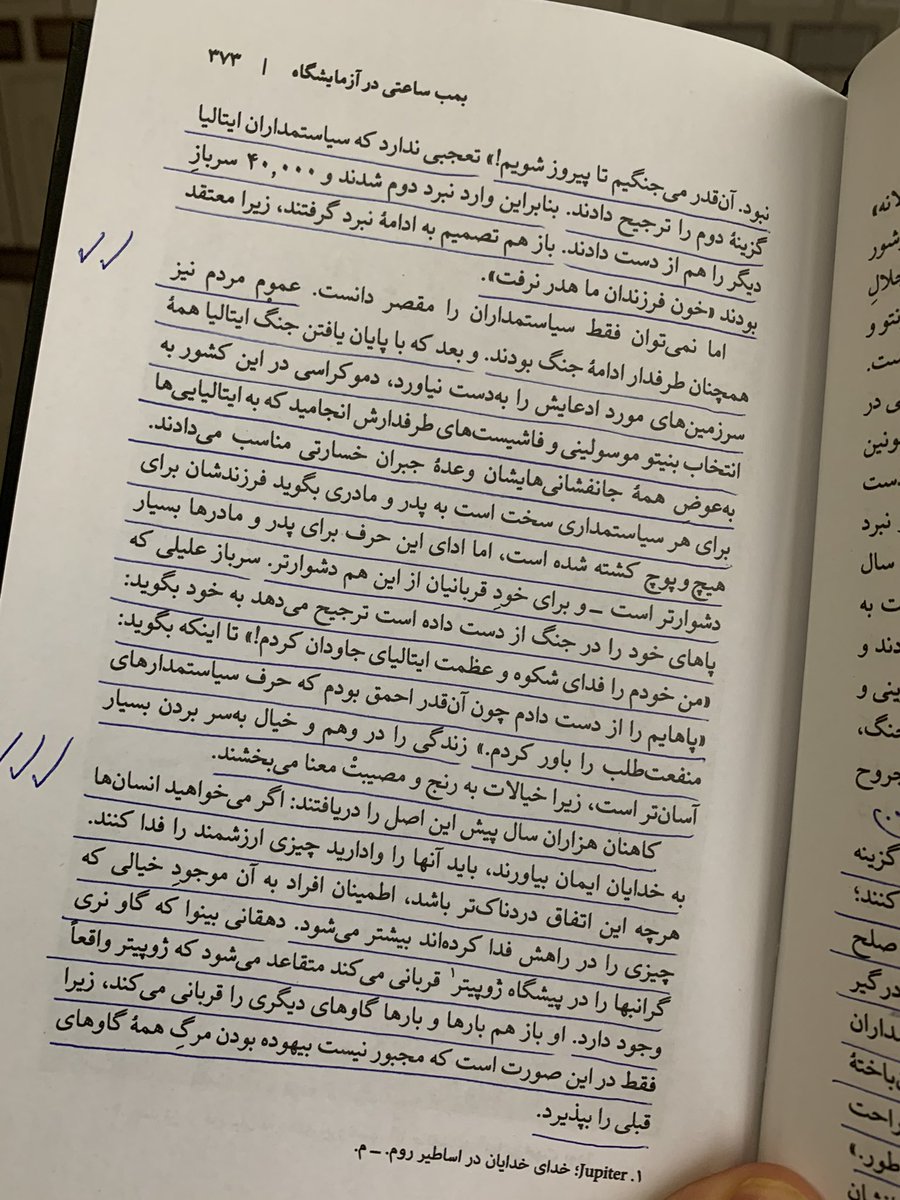 بمب ساعتی در آزمایشگاه | ۳۷۳
نبود. آن‌قدر می‌جنگیم تا پیروز شویم!» تعجبی ندارد که سیاستمداران ایتالیا
گزینهٔ دوم را ترجیح دادند. بنابراین وارد نبرد دوم شدند و ۴۰,۰۰۰ سربازِ
دیگر را هم از دست دادند. باز هم تصمیم به ادامهٔ نبرد گرفتند، زیرا معتقد
بودند «خون فرزندان ما هدر نرفت».
اما نمی‌توان فقط سیاستمداران را مقصر دانست. عموم مردم نیز
همچنان طرفدار ادامهٔ جنگ بودند. و بعد که با پایان یافتن جنگ ایتالیا همهٔ
سرزمین‌های مورد ادعایش را به‌دست نیاورد، دموکراسی در این کشور به
انتخاب بنیتو موسولینی و فاشیست‌های طرفدارش انجامید که به ایتالیایی‌ها
به‌عوضِ همهٔ جانفشانی‌هایشان وعدهٔ جبران خسارتی مناسب می‌دادند.
برای هر سیاستمداری سخت است به پدر و مادری بگوید فرزندشان برای
هیچ و پوچ کشته شده است، اما ادای این حرف برای پدر و مادرها بسیار
دشوارتر است ـ و برای خودِ قربانیان از این هم دشوارتر. سرباز علیلی که
پاهای خود را در جنگ از دست داده است ترجیح می‌دهد به خود بگوید:
«من خودم را فدای شکوه و عظمت ایتالیای جاودان کردم!» تا اینکه بگوید:
«پاهایم را از دست دادم چون آن‌قدر احمق بودم که حرف سیاستمدارهای
منفعت‌طلب را باور کردم.» زندگی را در وهم و خیال به‌سر بردن بسیار
آسان‌تر است، زیرا خیالات به رنج و مصیبتْ معنا می‌بخشند.
کاهنان هزاران سال پیش این اصل را دریافتند: اگر می‌خواهید انسان‌ها
به خدایان ایمان بیاورند، باید آنها را وادارید چیزی ارزشمند را فدا کنند.
هرچه این اتفاق دردناک‌تر باشد، اطمینان افراد به آن موجودِ خیالی که
چیزی را در راهش فدا کرده‌اند بیشتر می‌شود. دهقانی بینوا که گاو نری
گرانبها را در پیشگاه ژوپیتر۱ قربانی می‌کند متقاعد می‌شود که ژوپیتر واقعاً
وجود دارد. او باز هم بارها و بارها گاوهای دیگری را قربانی می‌کند، زیرا
فقط در این صورت است که مجبور نیست بیهوده بودن مرگِ همهٔ گاوهای
قبلی را بپذیرد.
۱. Jupiter؛ خدای خدایان در اساطیر روم. ـ م.
شور
نبرد
سال
جنگ،
گزینه
کنند؛
صلح